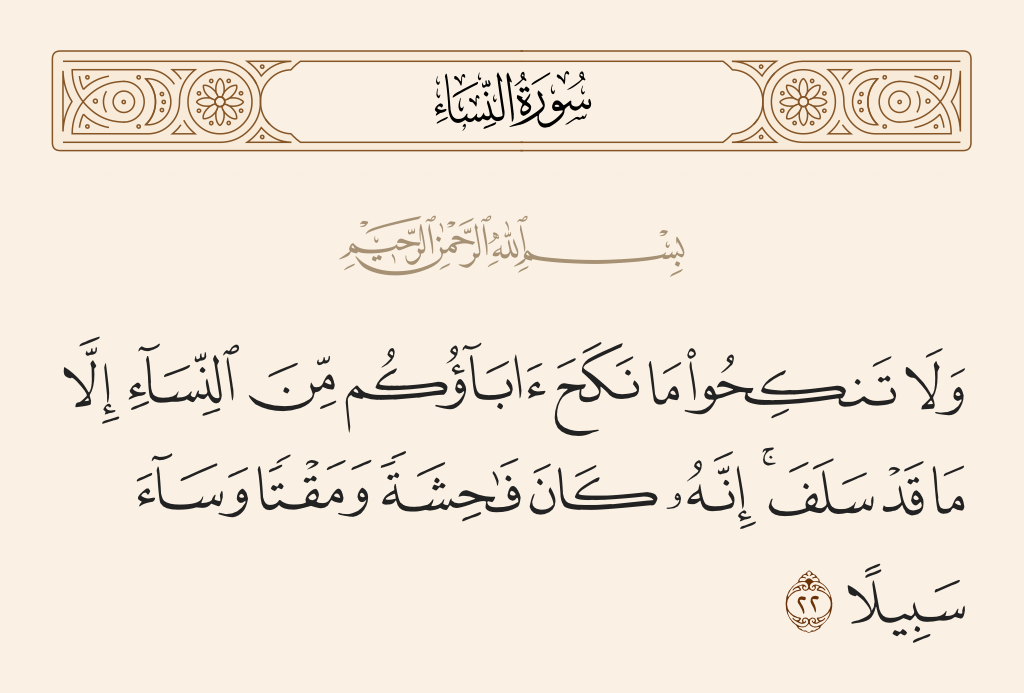 سُورَةُ النِّسَاءِ
بِسْمِ ٱللَّهِ ٱلرَّحْمَٰنِ ٱلرَّحِيمِ
وَلَا تَنكِحُوا۟ مَا نَكَحَ ءَابَآؤُكُم مِّنَ ٱلنِّسَآءِ إِلَّا
مَا قَدْ سَلَفَ ۚ إِنَّهُۥ كَانَ فَـٰحِشَةً وَمَقْتًا وَسَآءَ
سَبِيلًا ٢٢